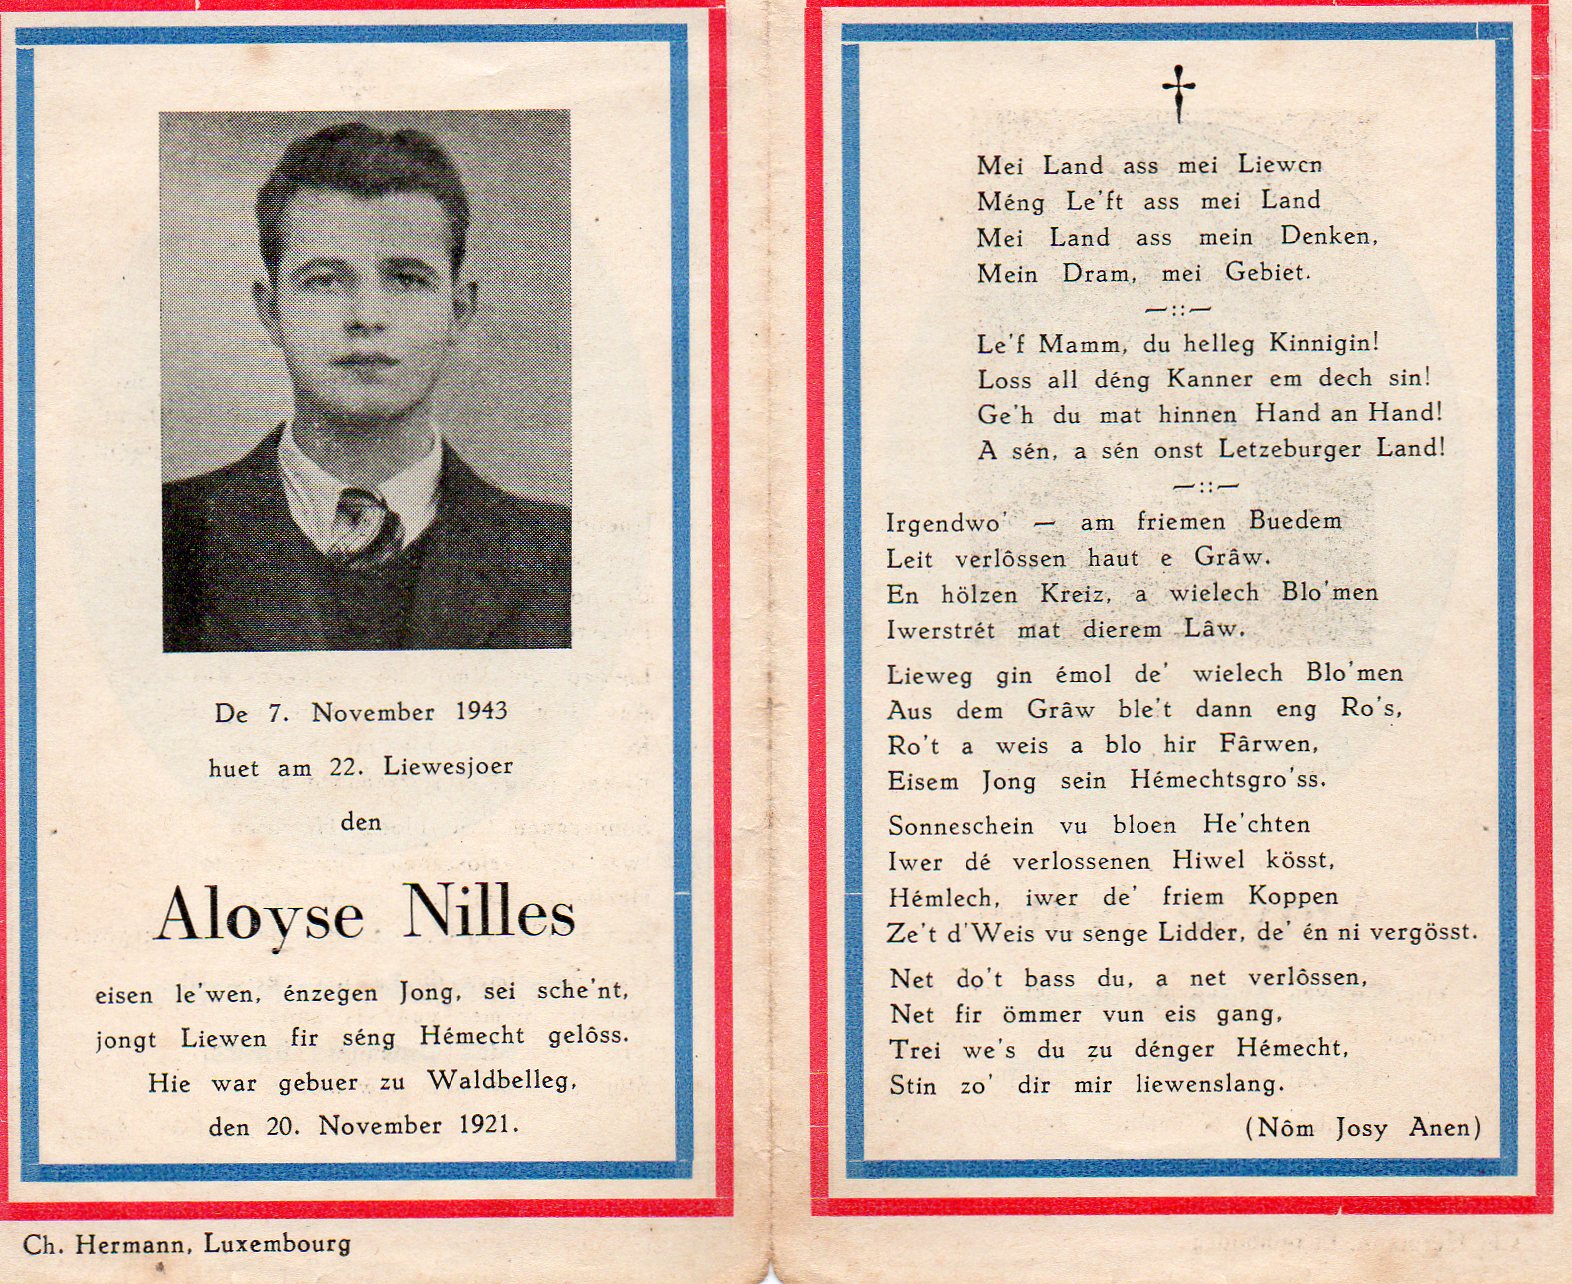 De 7. November 1943
huet am 22. Liewesjoer
den
Aloyse Nilles
eisen le'wen, énzegen Jong, sei sche'nt,
jongt Liewen fir séng Hémecht gelôss.
Hie war gebuer zu Waldbelleg,
den 20. November 1921.
Ch. Hermann, Luxembourg
Mei Land ass mei Liewen
Méng Le'ft ass mei Land
Mei Land ass mein Denken,
Mein Dram, mei Gebiet.
Le'f Mamm, du helleg Kinnigin!
Loss all déng Kanner em dech sin!
Ge'h du mat hinnen Hand an Hand!
A sén, a sén onst Letzeburger Land!
Irgendwo' — am friemen Buedem
Leit verlôssen haut e Grâw.
En hölzen Kreiz, a wielech Blo'men
Iwerstrét mat dierem Lâw.
Lieweg gin émol de' wielech Blo'men
Aus dem Grâw ble't dann eng Ro's,
Ro't a weis a blo hir Fârwen,
Eisem Jong sein Hémechtsgro'ss.
Sonneschein vu bloen He'chten
Iwer dé verlossenen Hiwel kösst,
Hémlech, iwer de' friem Koppen
Ze't d'Weis vu senge Lidder, de' én ni vergösst.
Net do't bass du, a net verlôssen,
Net fir ömmer vun eis gang,
Trei we's du zu dénger Hémecht,
Stin zo' dir mir liewenslang.
(Nôm Josy Anen)